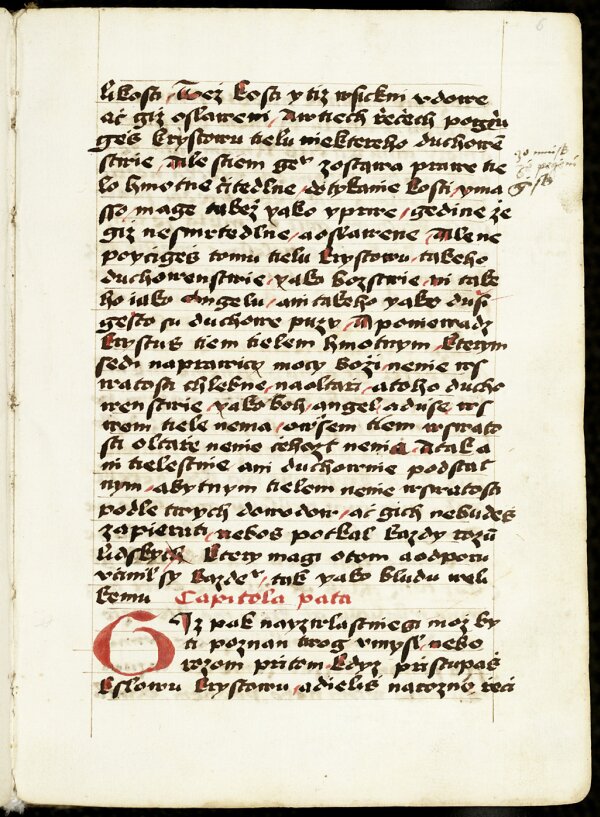 likosti Też kosti y tiz wsickni vdowe
ač giz oslaweni A w tiech rčečech pogču
geš krystowu tielu niektereho duchowē
stwie Ale stiem geͮ zostawa prawe tie
lo hmotne čitedlne ditykanie kosti yma
sso mage takež yako yprwe gedine že
giž nesmrtedlne aoslawene Ale ne
poyčigeš tomu tielu krystowu takeho
duchowenstwie yako bozstwie ni take
ho iako Angelu ani takeho yako duši
gesto su duchowe puzy A poniewadz
krystus tiem tielem hmotnym kterym
sedi naprawici mocy boži nenie ws
watosti chlebne naoltaři atoho ducho
wenstwie yako boh angel aduše ws
wem tiele nema owšem tiem wswato
sti oltarže nenie A tak a
ni tielestnie ani duchownie podstat
nym abytnym tielem nenie wswatosti
podle twych dowodow ač gich nebudeš
zapierati nebos potkal kazdy rozū
lidskych ktery magi otom aodporu
včinil sy kazdeͮ tak yako bludu weli
kemu Capitola pata
Giz pak nayzwlastniegi moz by
ti poznan twog vmysl nebo
rozom pritom kdyz pristupaš
kslowu krystowu adieliš narozno řeči